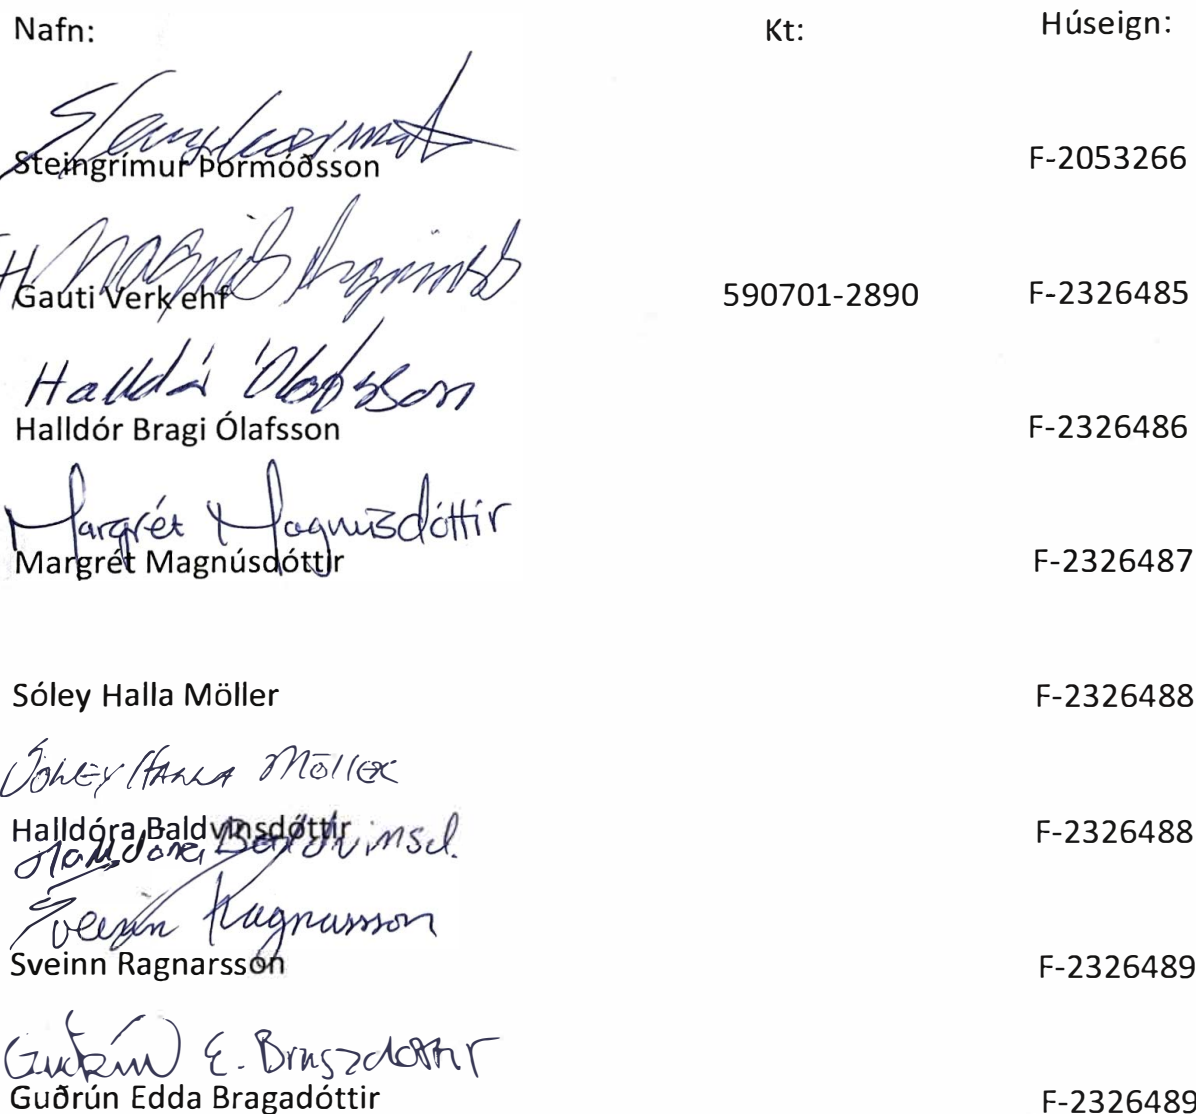 Nafn: Kt: Húseign:
Steingrímur Þormóðsson F-2053266
Gauti Verk ehf 590701-2890 F-2326485
Halldór Ólafsson
Halldór Bragi Ólafsson F-2326486
Margrét Magnúsdóttir
Margrét Magnúsdóttir F-2326487
Sóley Halla Möller F-2326488
Sóley Halla Möller
Halldóra Baldvinsdóttir F-2326488
Halldóra Baldvinsd.
Sveinn Ragnarsson
Sveinn Ragnarsson F-2326489
Guðrún E. Bragadóttir
Guðrún Edda Bragadóttir F-2326489